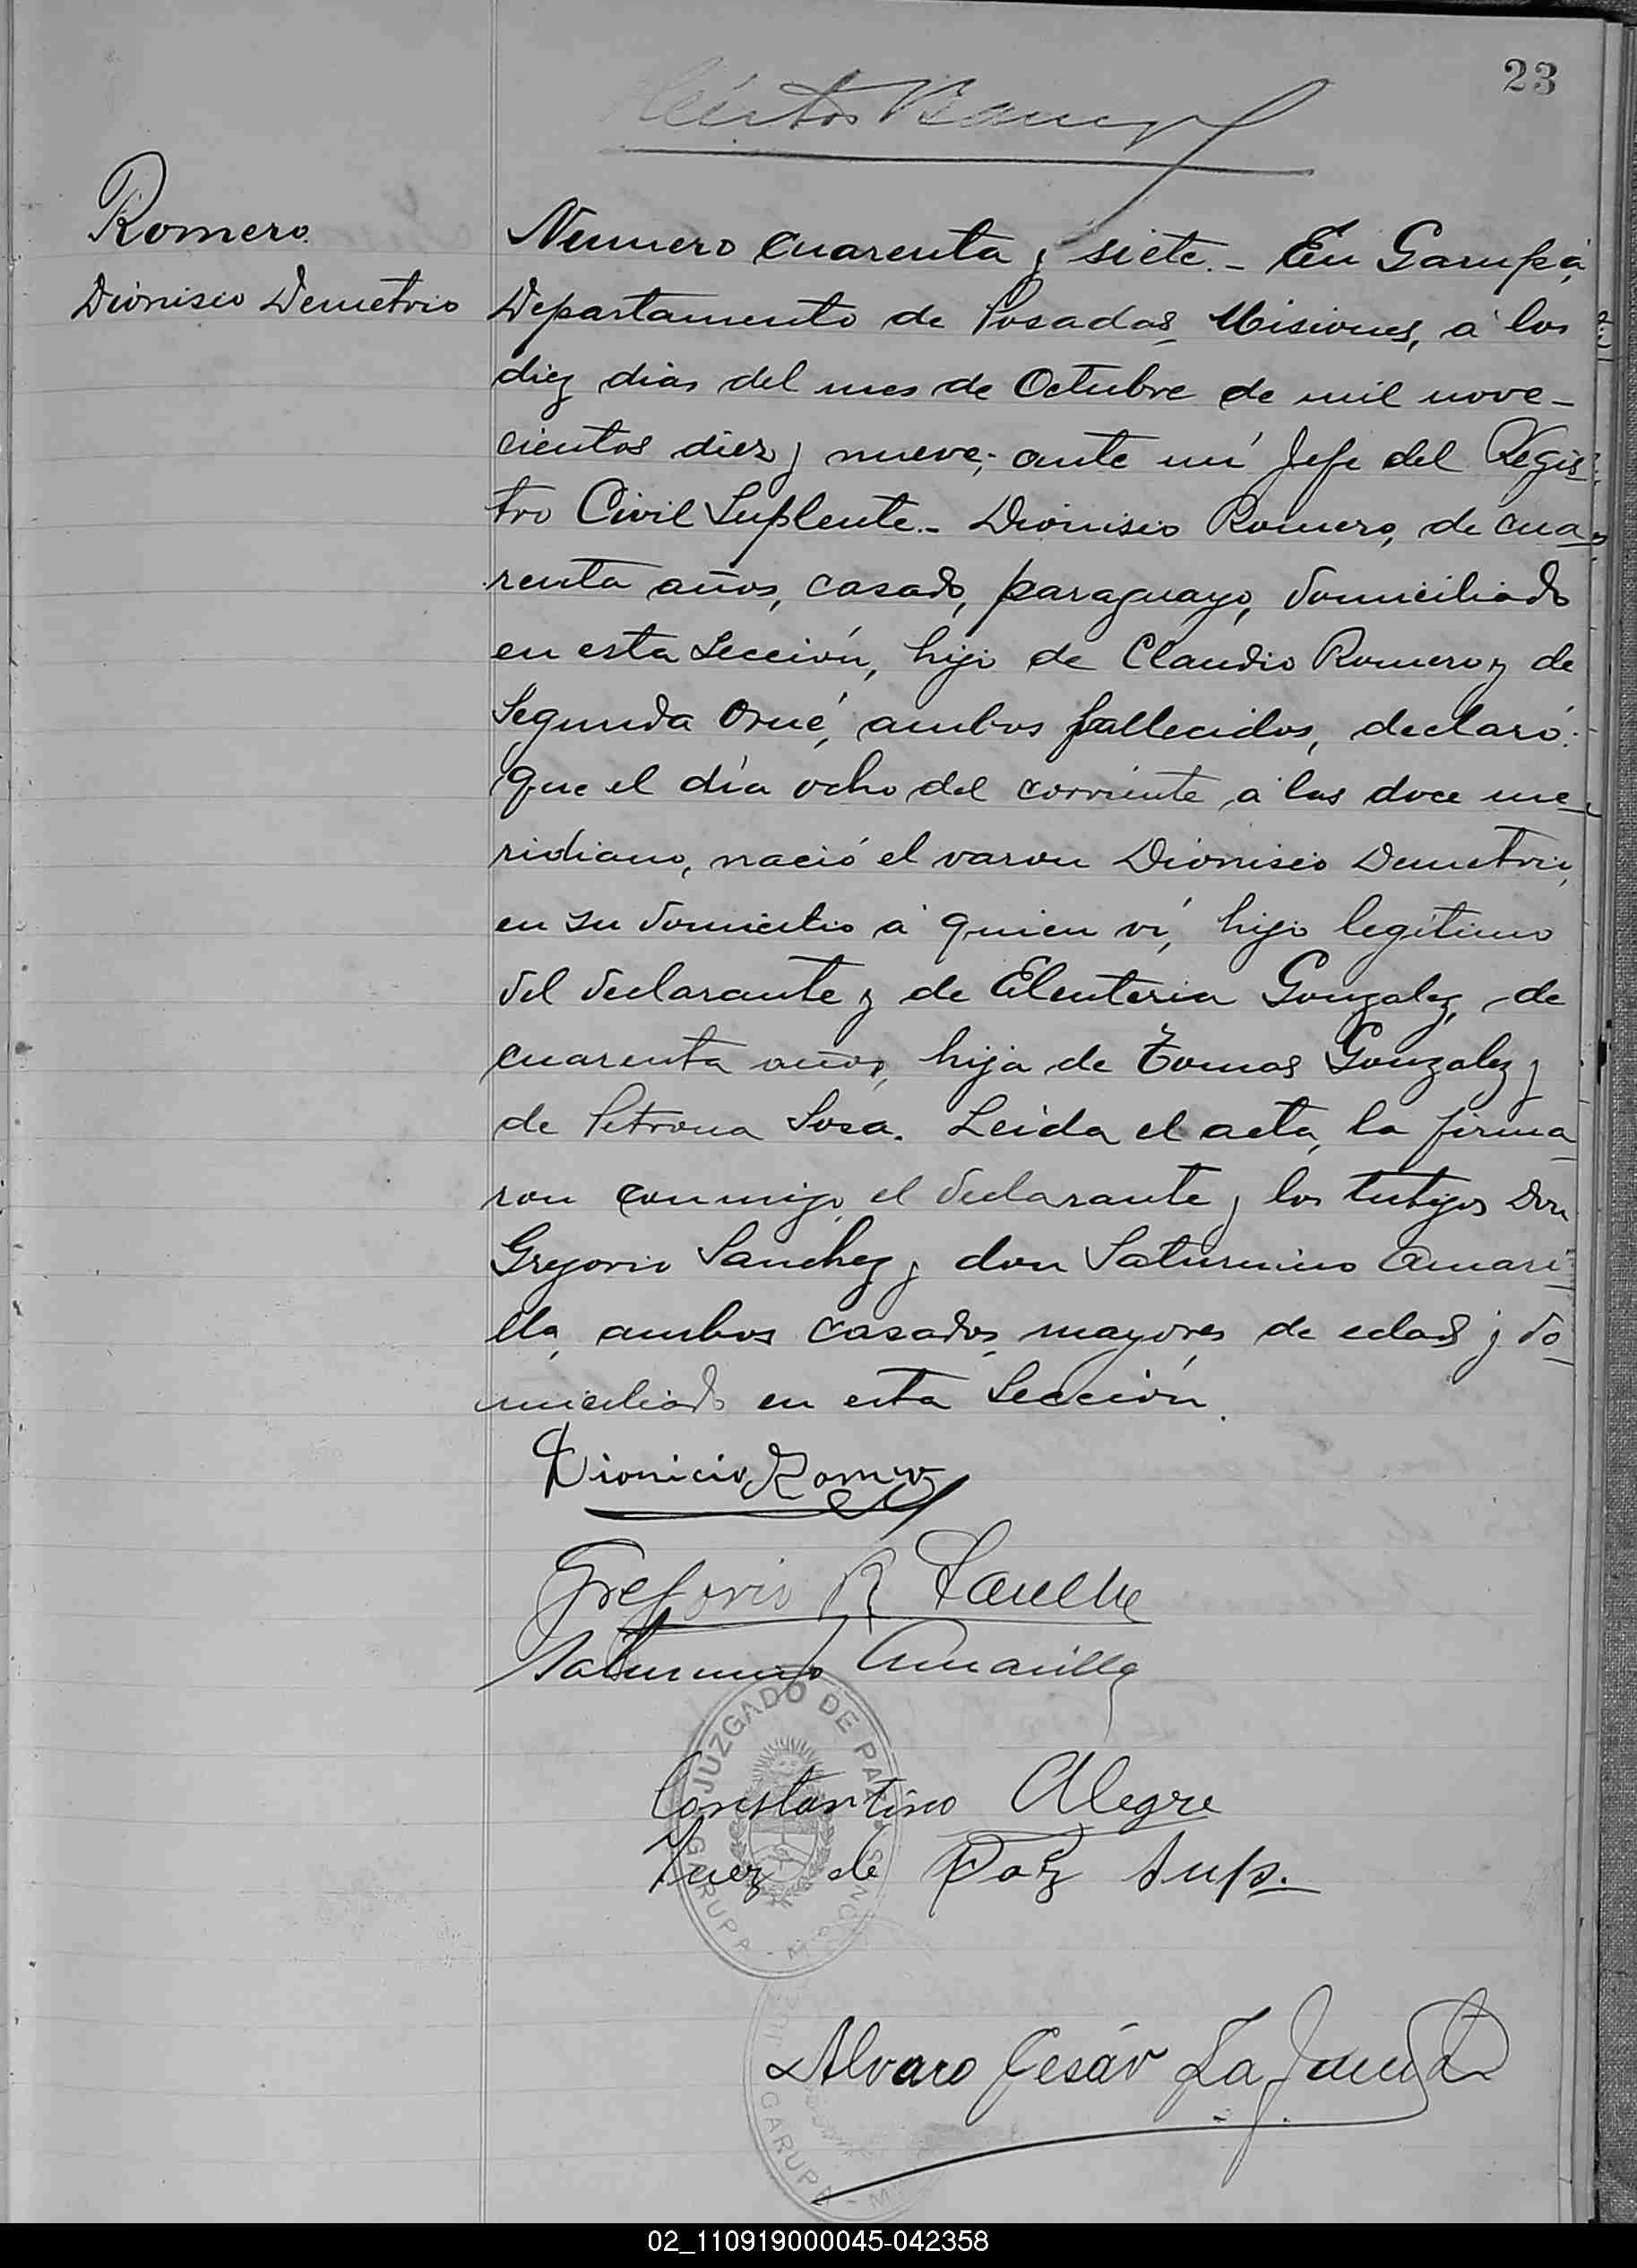 23
Romero
Dionisio Demetrio
Numero cuarenta y siete.- En Garupá,
Departamento de Posadas, Misiones, á los
diez dias del mes de Octubre de mil nove-
cientos diez y nueve; ante mí Jefe del Regis-
tro Civil Suplente.- Dionisio Romero, de cua-
renta años, casado, paraguayo, domiciliado
en esta Sección, hijo de Claudio Romero y de
Segunda Orué, ambos fallecidos, declaró:
Que el día ocho del corriente á las doce me-
ridiano, nació el varon Dionisio Demetrio,
en su domicilio á quien ví, hijo legítimo
del declarante y de Eleuteria Gonzalez, de
cuarenta años, hija de Tomas Gonzalez y
de Petrona Sosa. Leida el acta, la firma-
ron conmigo el declarante y los testigos Don
Gregorio Sanchez y don Saturnino Amari-
lla, ambos casados, mayores de edad y do-
miciliado en esta Sección.
Dionicio Romero
Gregorio R Sanche
Saturnino Amarilla
JUZGADO DE PAZ
GARUPA - MISIONES
Constantino Alegre
Juez de Paz Sup.
Alvaro Cesár
GARUPA
02_110919000045-042358